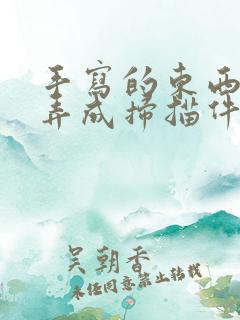 手寫的東西
弄成掃描件
吴朝香
未經同意禁止转载